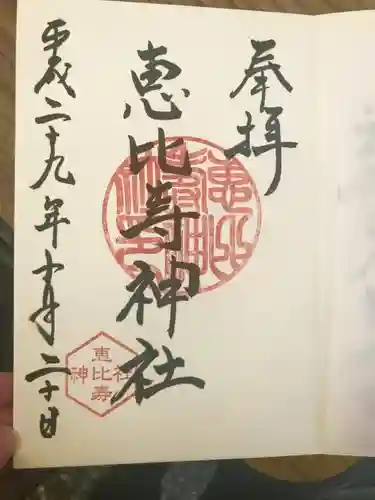 奉拝
恵比寿神社
平成二十九年十月二十日
恵比寿
神社